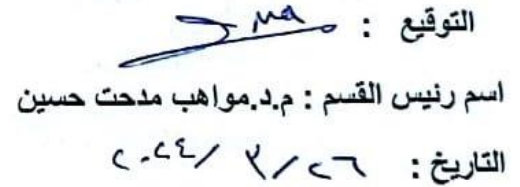 التوقيع :
اسم رئيس القسم : م.د.مواهب مدحت حسين
التاريخ : ٢٦ / ٣ / ٢٠٢٤